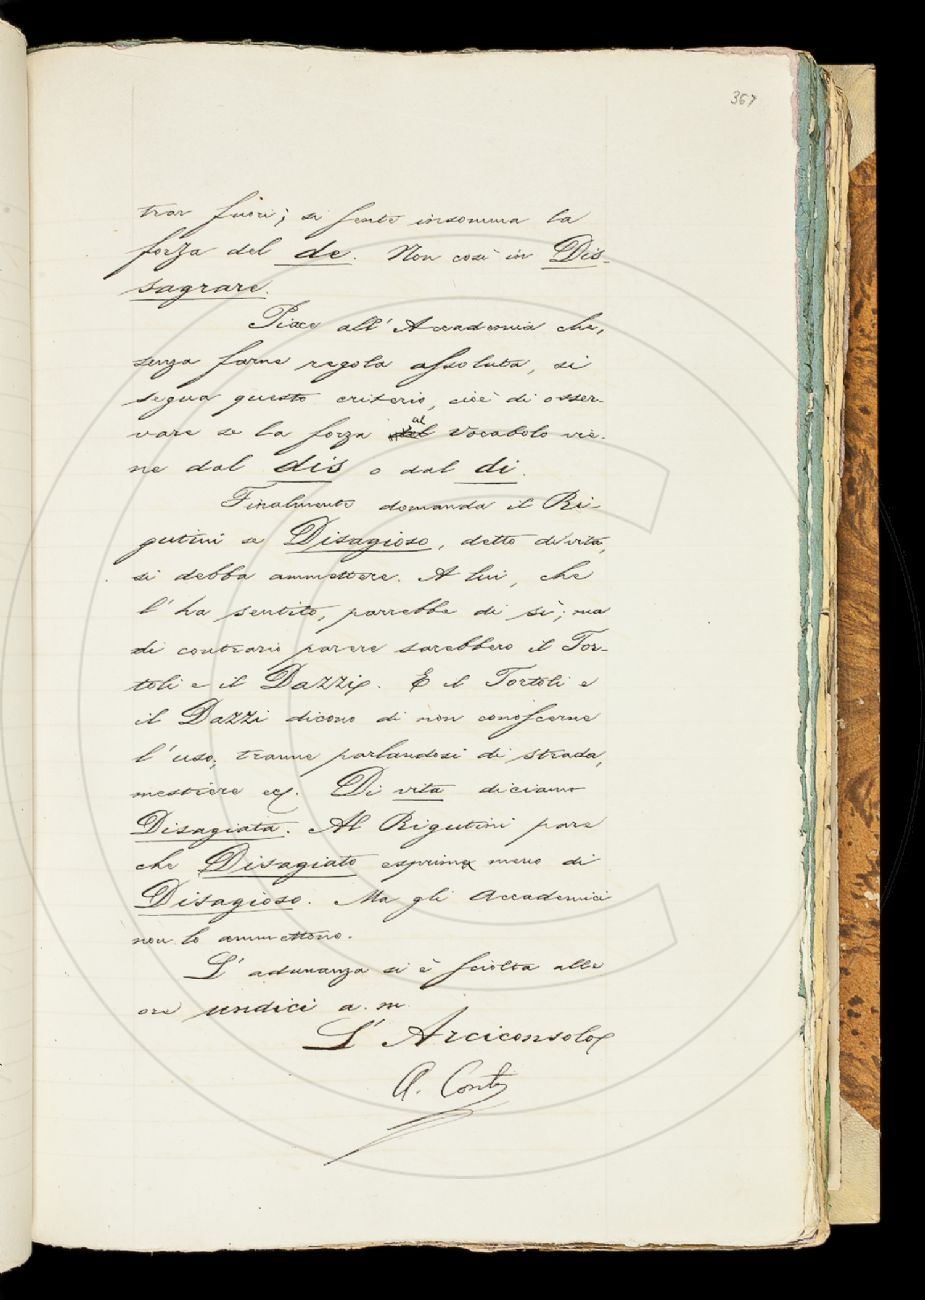 367
trar fuori; si sente insomma la
forza del de. Non così in Dis-
sagrare.
Piace all'Accademia che,
senza farne regola assoluta, si
segua questo criterio, cioè di osser-
vare se la forza al vocabolo vie-
ne dal dis o dal di.
Finalmente domanda il Ri-
gutini se Disagioso, detto di vita,
si debba ammettere. A lui, che
l'ha sentito, parrebbe di sì; ma
di contrario parere sarebbero il Tor-
toli e il Dazzi. E il Tortoli e
il Dazzi dicono di non conoscerne
l'uso, tranne parlandosi di strada,
mestiere ec. Di vita diciamo
Disagiata. Al Rigutini pare
che Disagiato esprima meno di
Disagioso. Ma gli Accademici
non lo ammettono.
L'adunanza si è sciolta alle
ore undici a. m.
L'Arciconsolo
A. Conti